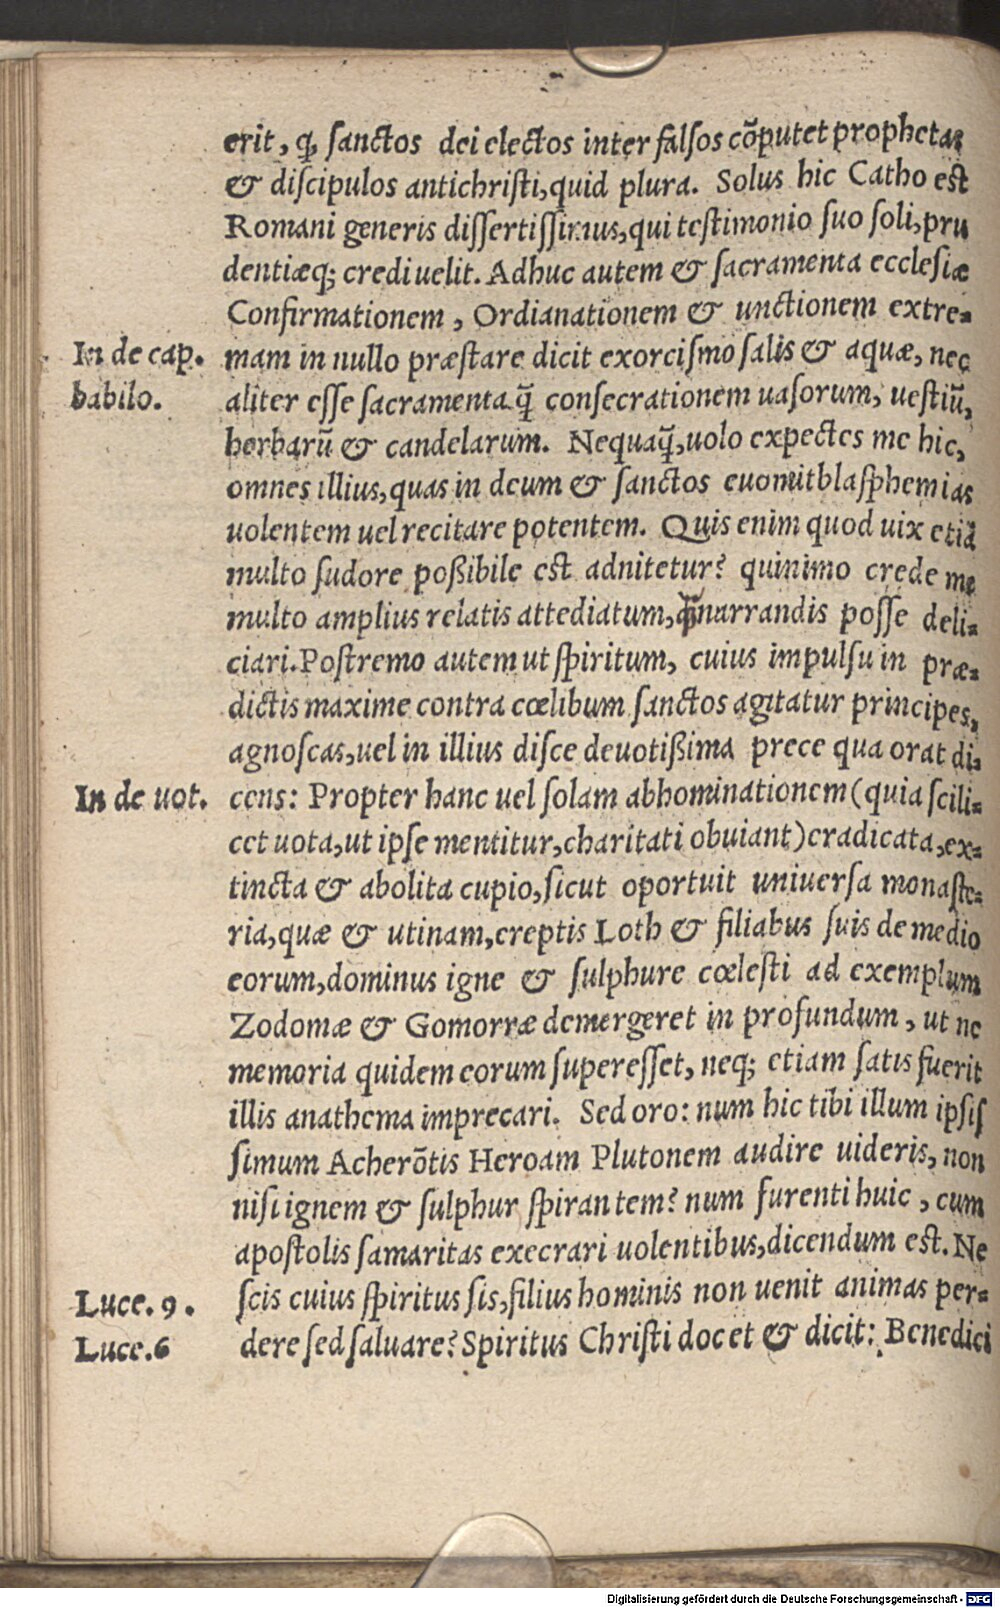 erit, ꝙ sanctos dei electos inter falsos cõputet prophetas
& discipulos antichristi, quid plura. Solus hic Catho est
Romani generis dissertissimus, qui testimonio suo soli, pru
dentiæq; credi uelit. Adhuc autem & sacramenta ecclesiæ
Confirmationem, Ordianationem & unctionem extre-
In de cap. mam in nullo præstare dicit exorcismo salis & aquæ, nec
babilo. aliter esse sacramenta q̃ consecrationem uasorum, uestiũ,
herbarũ & candelarum. Nequaq̃, uolo expectes me hic,
omnes illius, quas in deum & sanctos euomit blasphemias
uolentem uel recitare potentem. Quis enim quod uix etiã
multo sudore poßibile est adnitetur? quinimo crede me
multo amplius relatis attediatum, q̃ narrandis posse deli-
ciari. Postremo autem ut spiritum, cuius impulsu in præ-
dictis maxime contra cœlibum sanctos agitatur principes,
agnoscas, uel in illius disce deuotißima prece qua orat di-
In de uot. cens: Propter hanc uel solam abhominationem (quia scili-
cet uota, ut ipse mentitur, charitati obuiant) eradicata, ex-
tincta & abolita cupio, sicut oportuit universa monaste-
ria, quæ & utinam, ereptis Loth & filiabus suis de medio
eorum, dominus igne & sulphure cœlesti ad exemplum
Zodomæ & Gomorræ demergeret in profundum, ut ne
memoria quidem eorum superesset, neq; etiam satis fuerit
illis anathema imprecari. Sed oro: num hic tibi illum ipsis
simum Acherõtis Heroam Plutonem audire uideris, non
nisi ignem & sulphur spirantem? num furenti huic, cum
apostolis samaritas execrari uolentibus, dicendum est. Ne
Luce. 9. scis cuius spiritus sis, filius hominis non uenit animas per-
Luce. 6 dere sed saluare? Spiritus Christi docet & dicit: Benedici
Digitalisierung gefördert durch die Deutsche Forschungsgemeinschaft - DFG